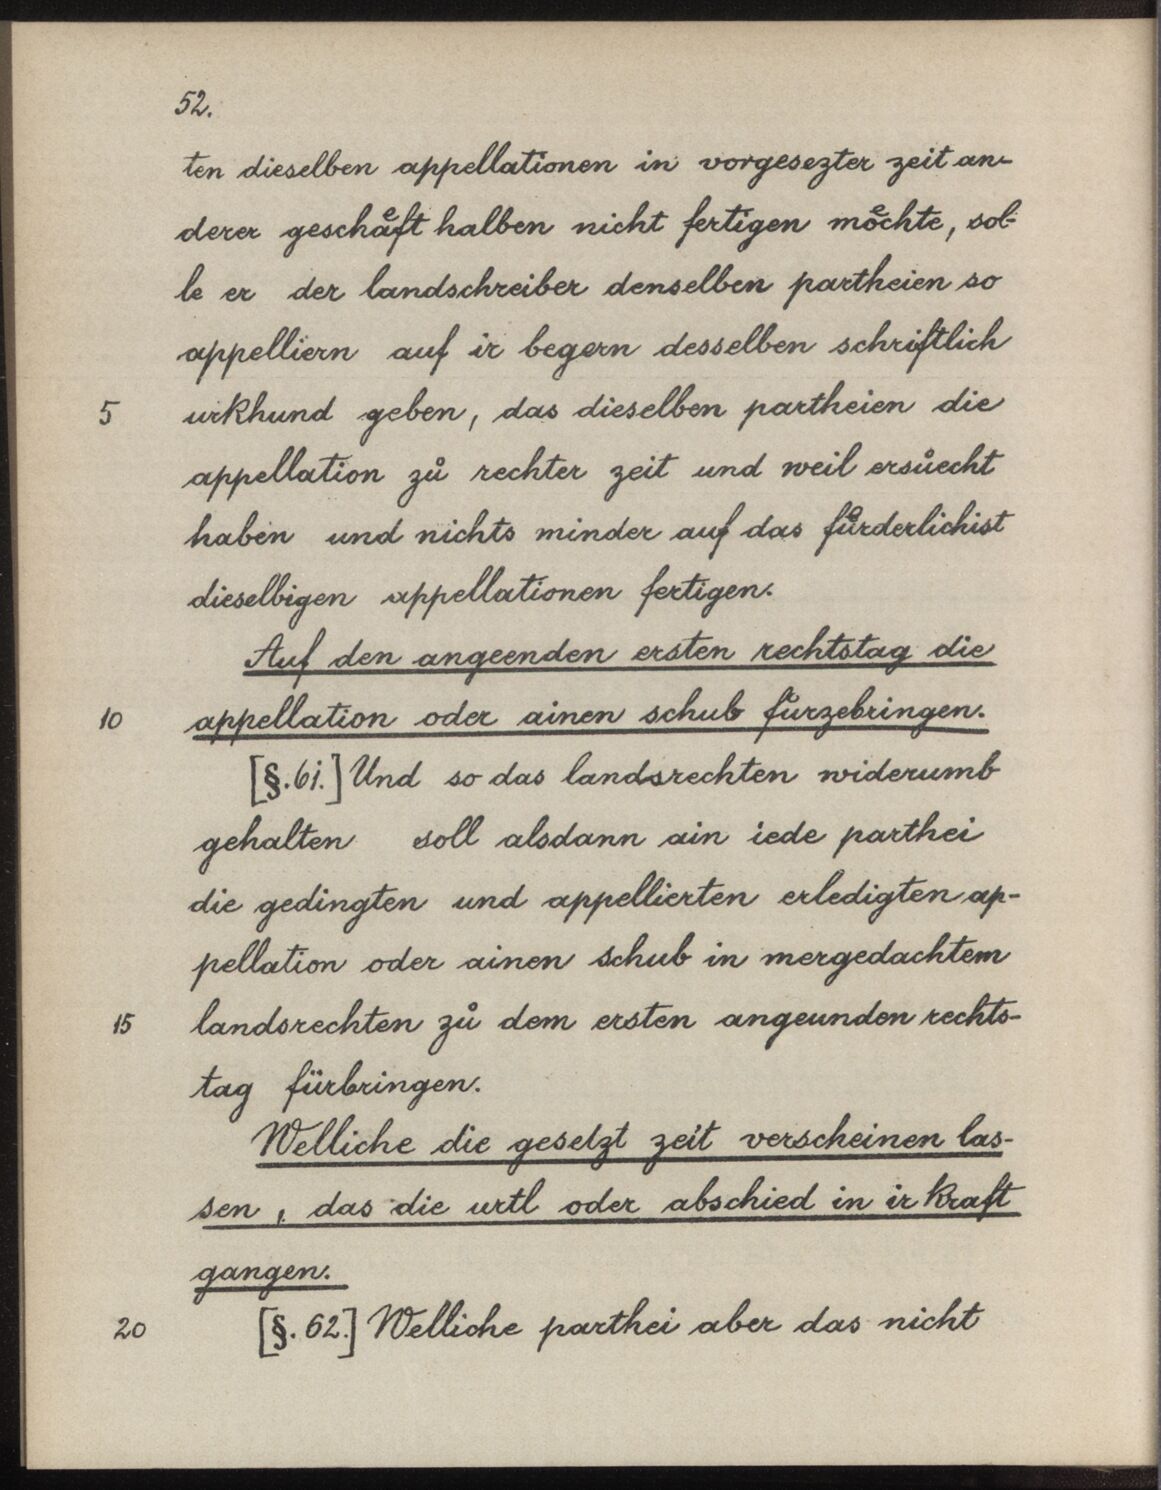 52.
ten dieselben appellationen in vorgesezter zeit an-
derer geschaͤft halben nicht fertigen moͤchte, sol-
le er der landschreiber denselben partheien so
appelliern auf ir begern desselben schriftlich
5 urkhund geben, das dieselben partheien die
appellation zů rechter zeit und weil ersůecht
haben und nichts minder auf das fůrderlichist
dieselbigen appellationen fertigen.
Auf den angeenden ersten rechtstag die
10 appellation oder ainen schub fürzebringen.
[§. 61.] Und so das landsrechten widerumb
gehalten soll alsdann ain iede parthei
die gedingten und appellierten erledigten ap-
pellation oder ainen schub in mergedachtem
15 landsrechten zů dem ersten angeunden rechts-
tag fürbringen.
Welliche die gesetzt zeit verscheinen las-
sen, das die urtl oder abschied in ir kraft
gangen.
20 [§. 62.] Welliche parthei aber das nicht